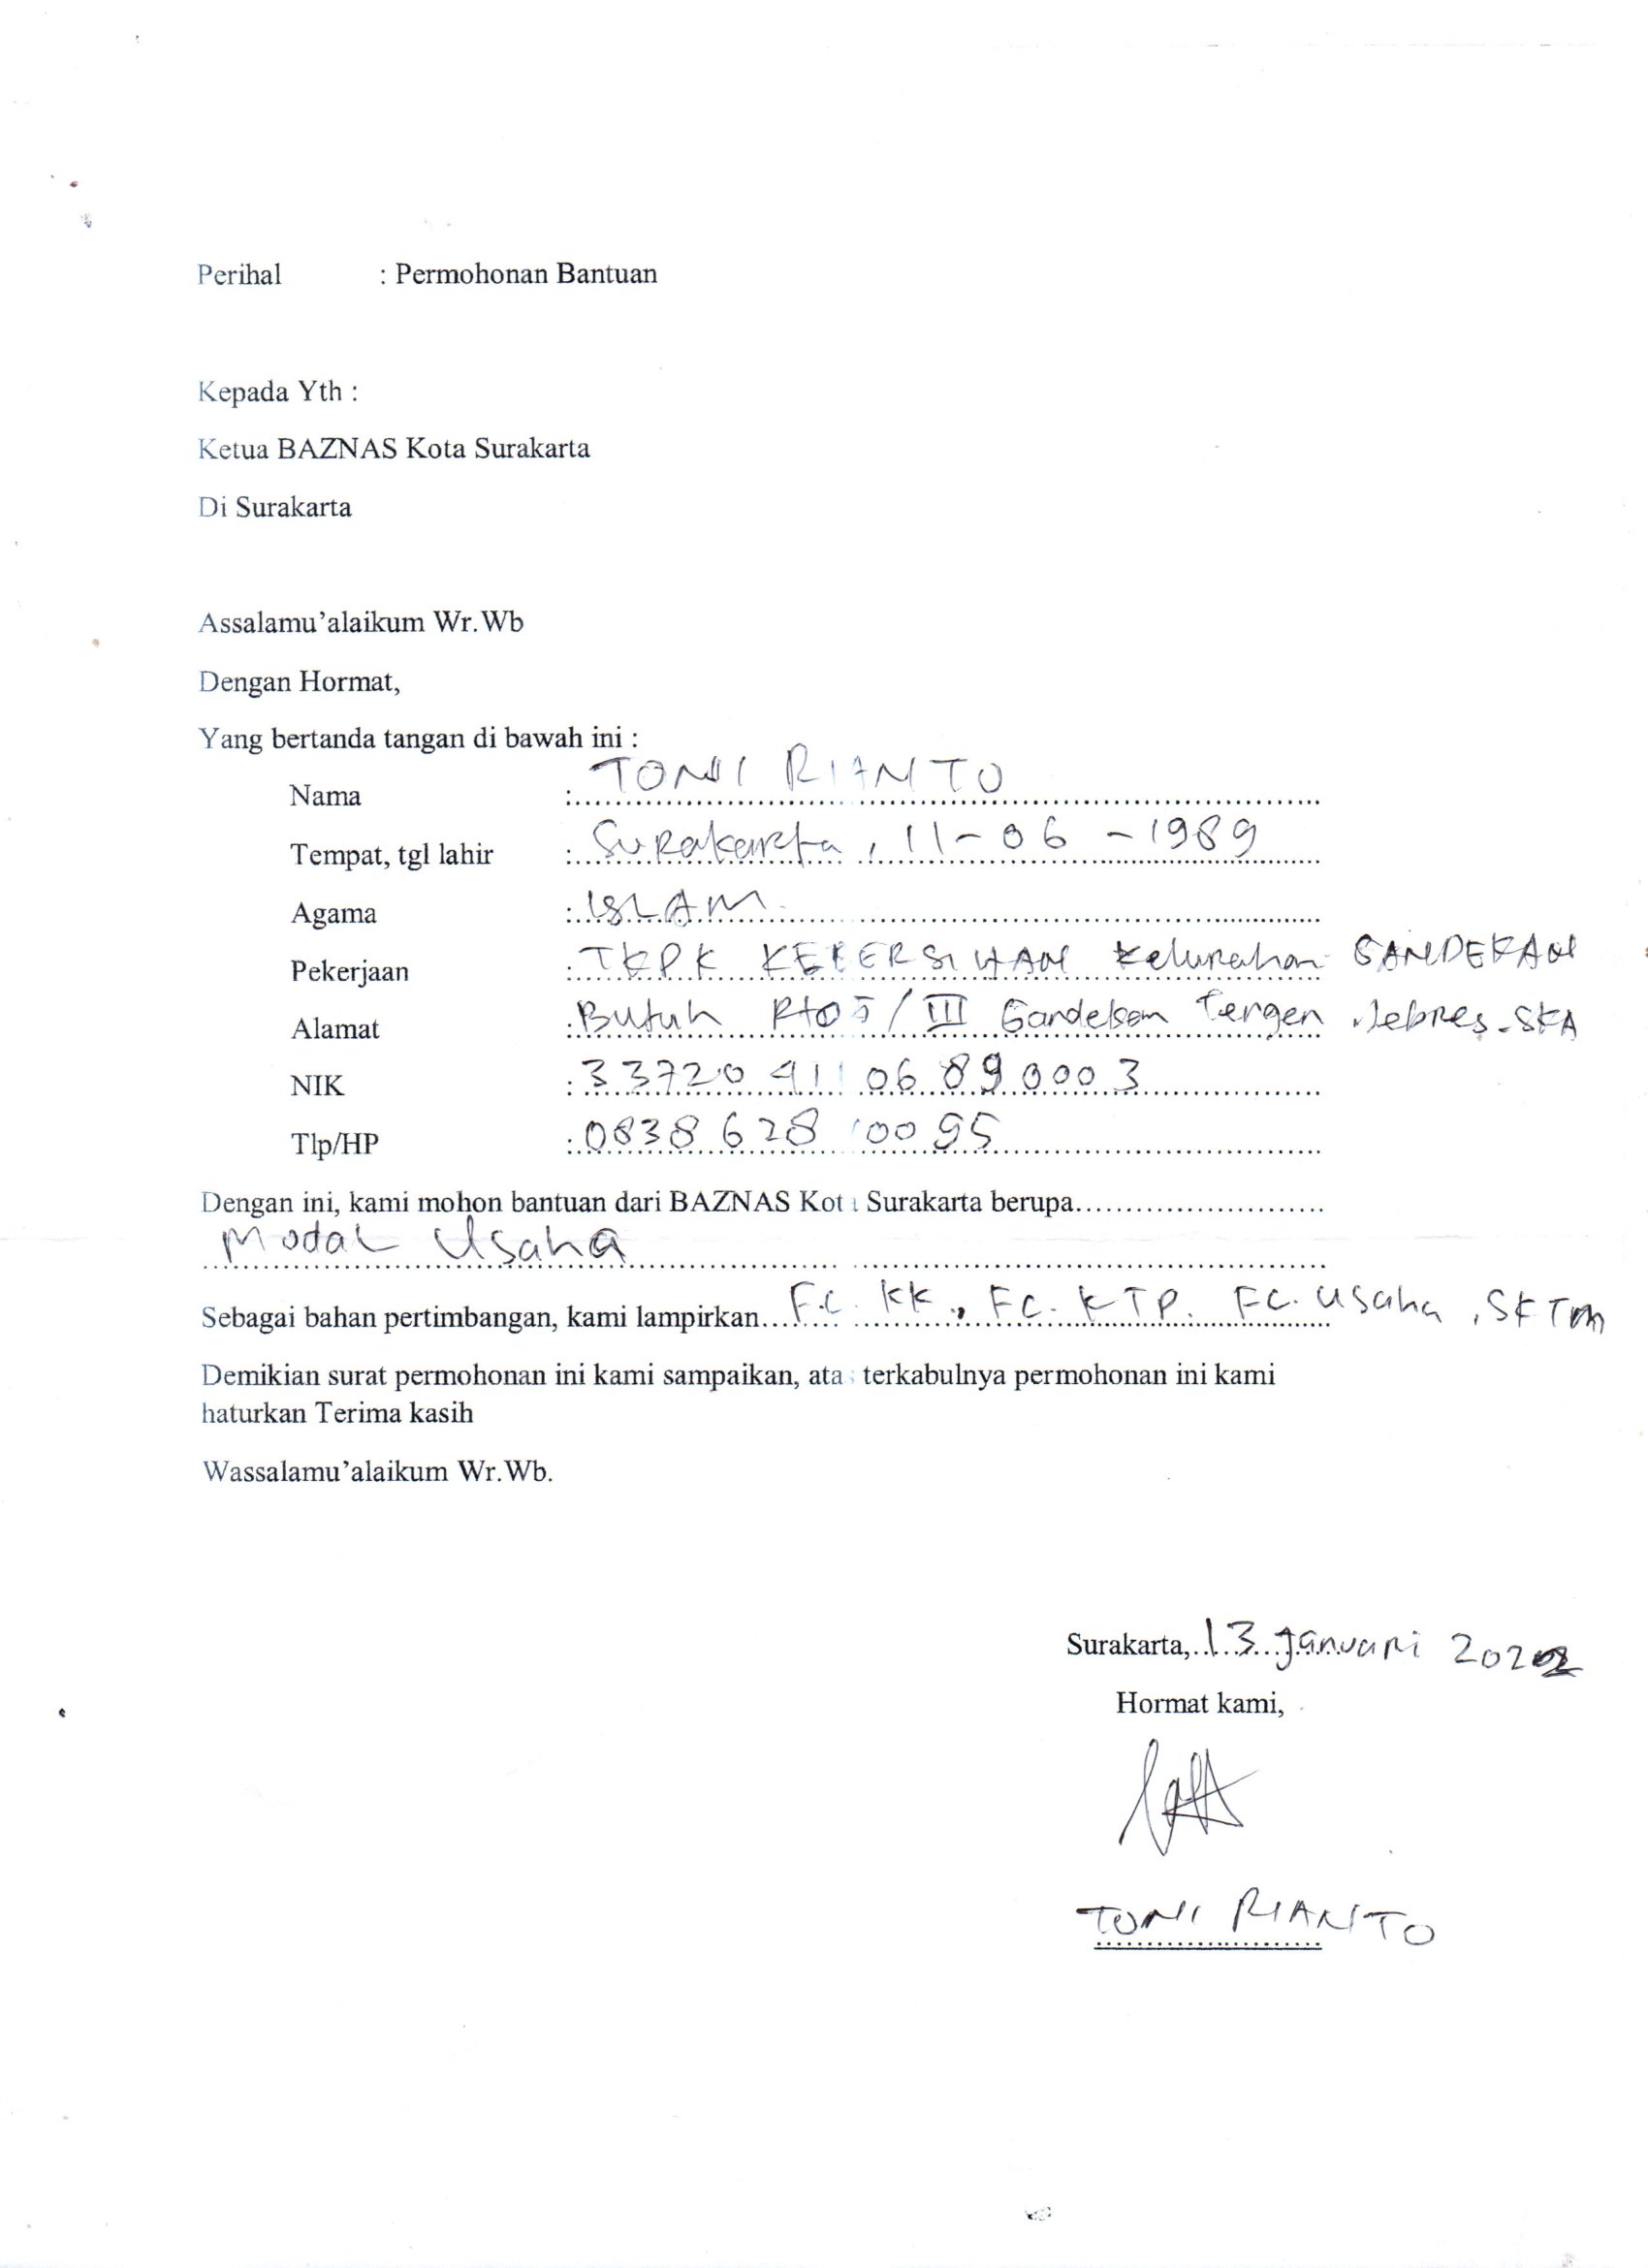 Perihal : Permohonan Bantuan
Kepada Yth :
Ketua BAZNAS Kota Surakarta
Di Surakarta
Assalamu'alaikum Wr.Wb
Dengan Hormat,
Yang bertanda tangan di bawah ini :
Nama : TONI RIANTO
Tempat, tgl lahir : Surakarta, 11-06-1989
Agama : ISLAM
Pekerjaan : TKPK KEBERSIHAN Kelurahan GANDEKAN
Alamat : Butuh Rt05/III Gandekan Tengen Jebres-SKA
NIK : 3372041106890003
Tlp/HP : 0838 628 100 95
Dengan ini, kami mohon bantuan dari BAZNAS Kota Surakarta berupa........................
Modal Usaha
Sebagai bahan pertimbangan, kami lampirkan F.C. KK, FC. KTP. FC. Usaha, SKTM
Demikian surat permohonan ini kami sampaikan, atas terkabulnya permohonan ini kami
haturkan Terima kasih
Wassalamu'alaikum Wr.Wb.
Surakarta, 13 Januari 2022
Hormat kami,
TONI RIANTO